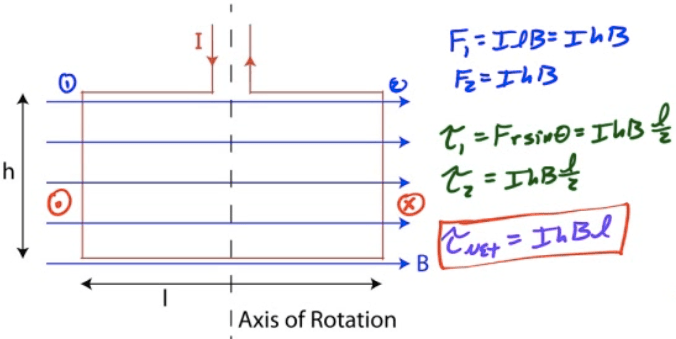 I
①
②
h
B
l
Axis of Rotation
F₁ = IlB = IhB
F₂ = IhB
τ₁ = Frsinθ = IhB l/2
τ₂ = IhB l/2
τ_NET = IhBl